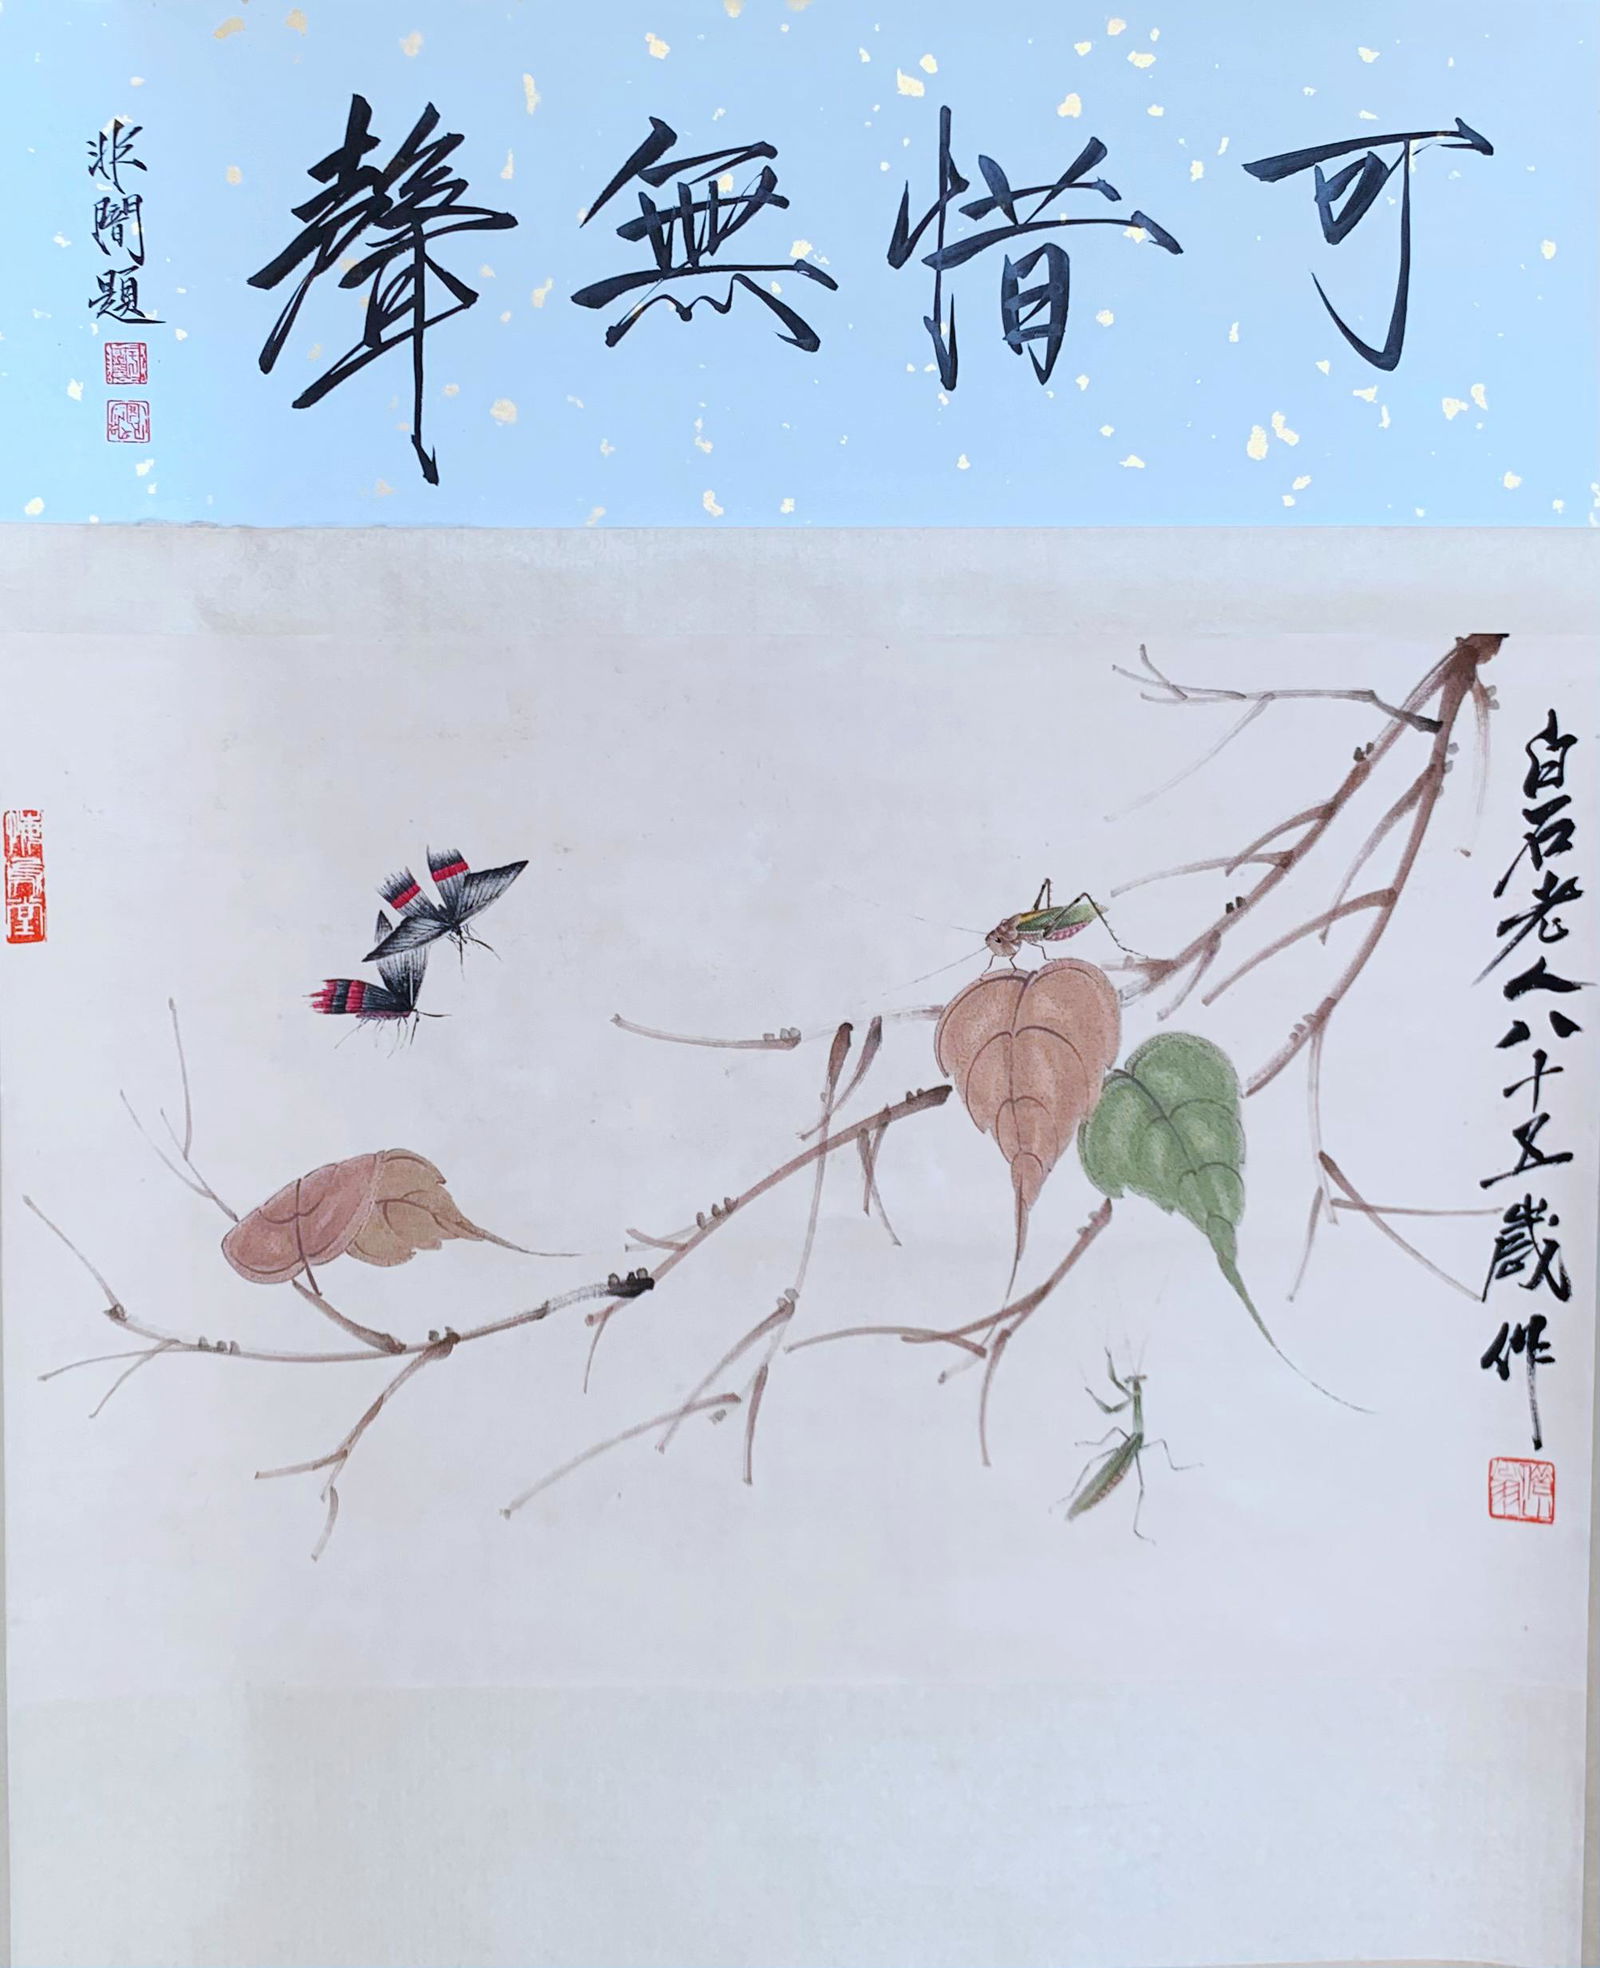 可惜無聲
非闇題
白石老人八十五歲作